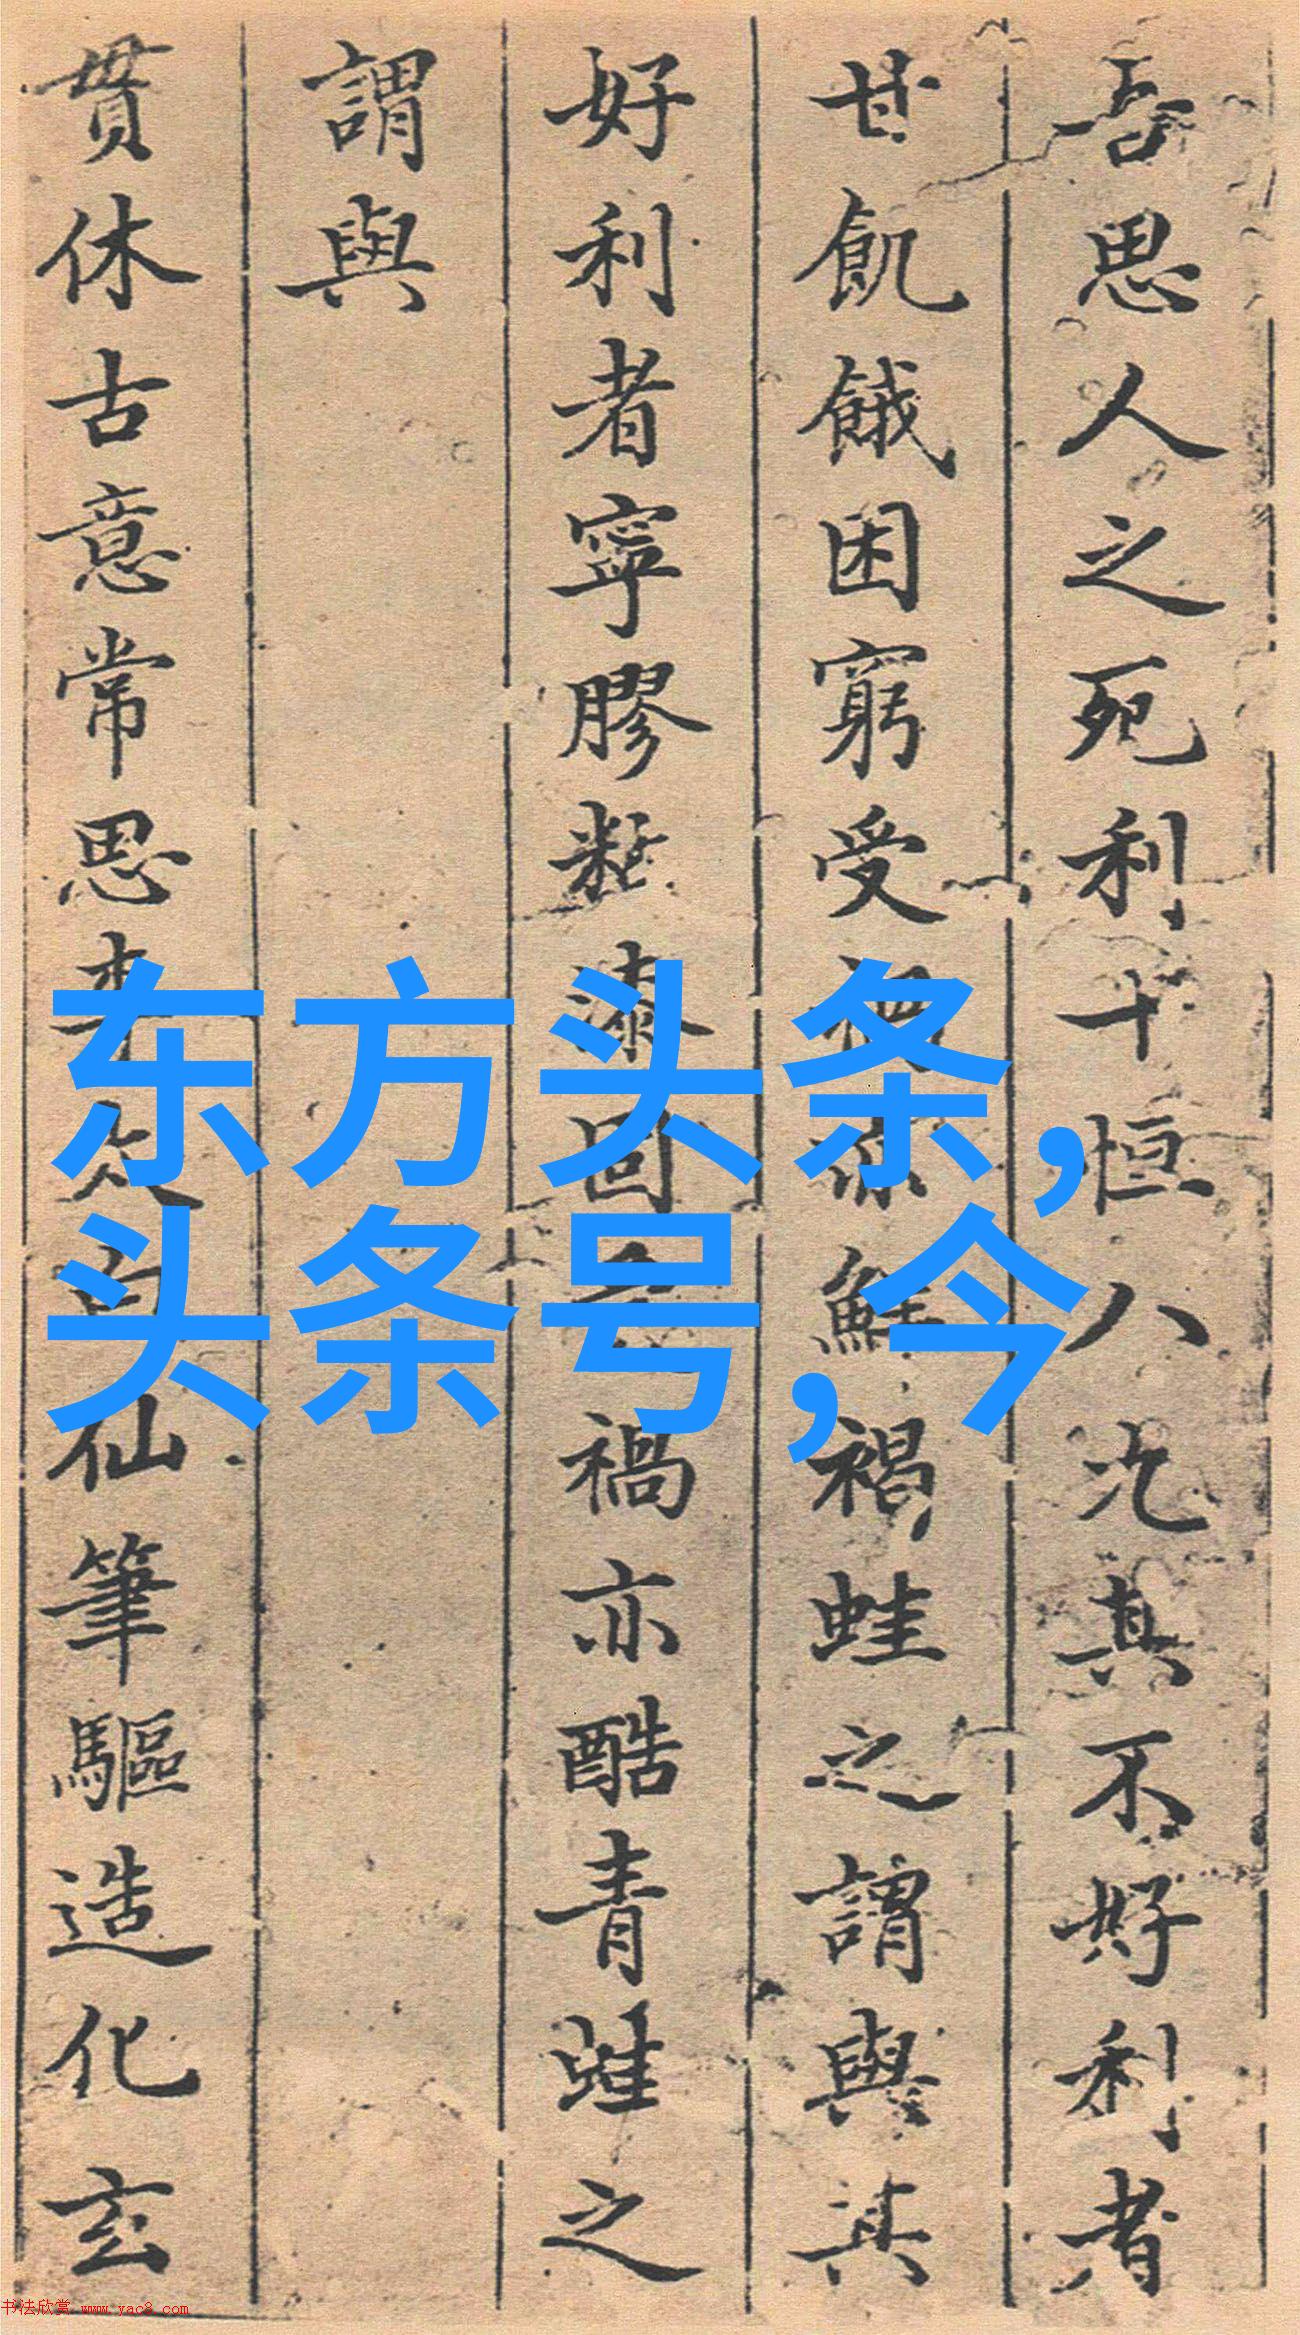 吾思人之死利十恒八九其不好利者
甘飢餓困窮受 亦鮮褐蛙之謂與其
好利者寧膠黏漆固 禍亦酷青蛙之
謂與
貫休古意常思李太白仙筆驅造化玄
东方头条,
头条号,今
书法欣赏 www.yac8.com